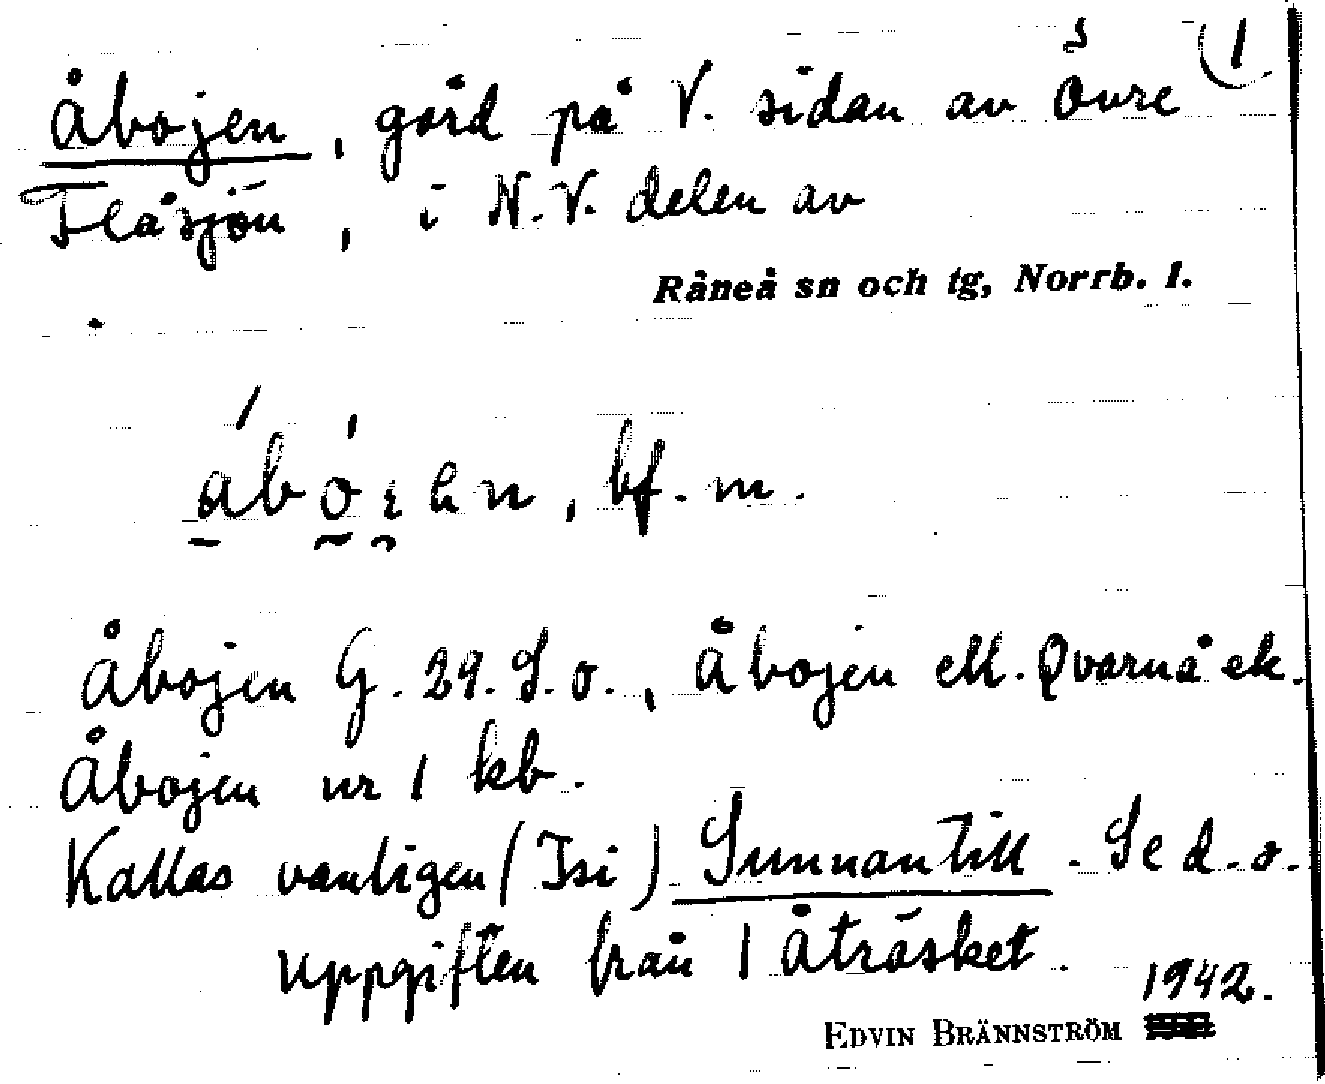 1
Åbojen, gård på V. sidan av Övre
Flåsjön, i N.V. delen av
Råneå sn och tg, Norrb. l.
bf. m.
Åbojen G. 29. S.o., Åbojen ell. Qvarnå ek.
Åbojen nr 1 kb.
Kallas vanligen (Isi) Sunnantill. Se d.o.
Uppgiften från 1 Åträsket.
1942.
EDVIN BRÄNNSTRÖM